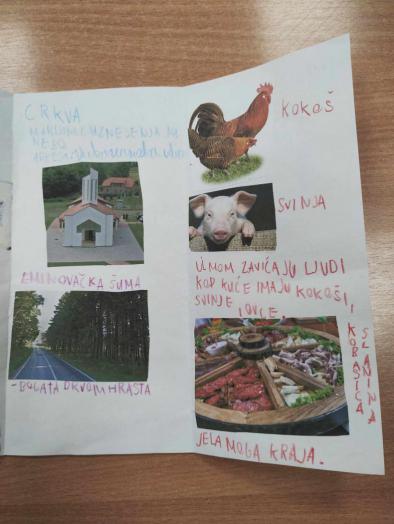 CRKVA
NEBO
EMINOVAČKA ŠUMA
-BOGATA DRVOM HRASTA
KOKOŠ
SVINJA
U MOM ZAVIČAJU LJUDI
KOD KUĆE IMAJU KOKOŠI,
SVINJE
I OVCE.
KOBASICA
SLANINA
JELA MOGA KRAJA.